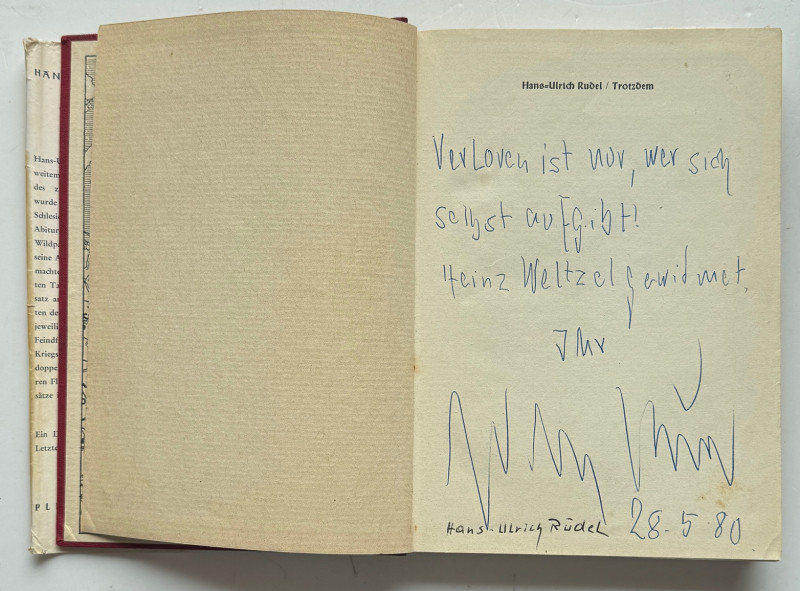 HAN
Hans-U
weitem
des z
wurde
Schlesie
Abitur
Wildpa
seine A
machte
ten Ta
satz a
ten de
jeweili
Feindf
Kriegs
doppe
ren Fl
sätze
Ein D
Letzte
P L
Hans=Ulrich Rudel / Trotzdem
Verloren ist nur, wer sich
selbst aufgibt!
Heinz Weltzel gewidmet.
Ihr
Hans-Ulrich Rudel
28.5.80